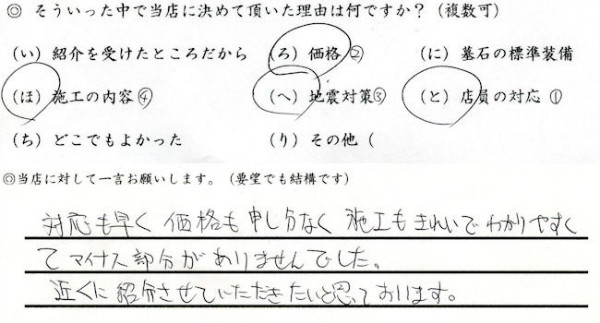 ◎ そういった中で当店に決めて頂いた理由は何ですか?(複数可)
(い) 紹介を受けたところだから (ろ) 価格② (に) 墓石の標準装備
(ほ) 施工の内容④ (へ) 地震対策③ (と) 店員の対応 ①
(ち) どこでもよかった (り) その他 (
◎当店に対して一言お願いします。(要望でも結構です)
対応も早く 価格も申し分なく 施工もきれいでわかりやすく
てマイナス部分がありませんでした。
近くに紹介させていただきたいと思っております。